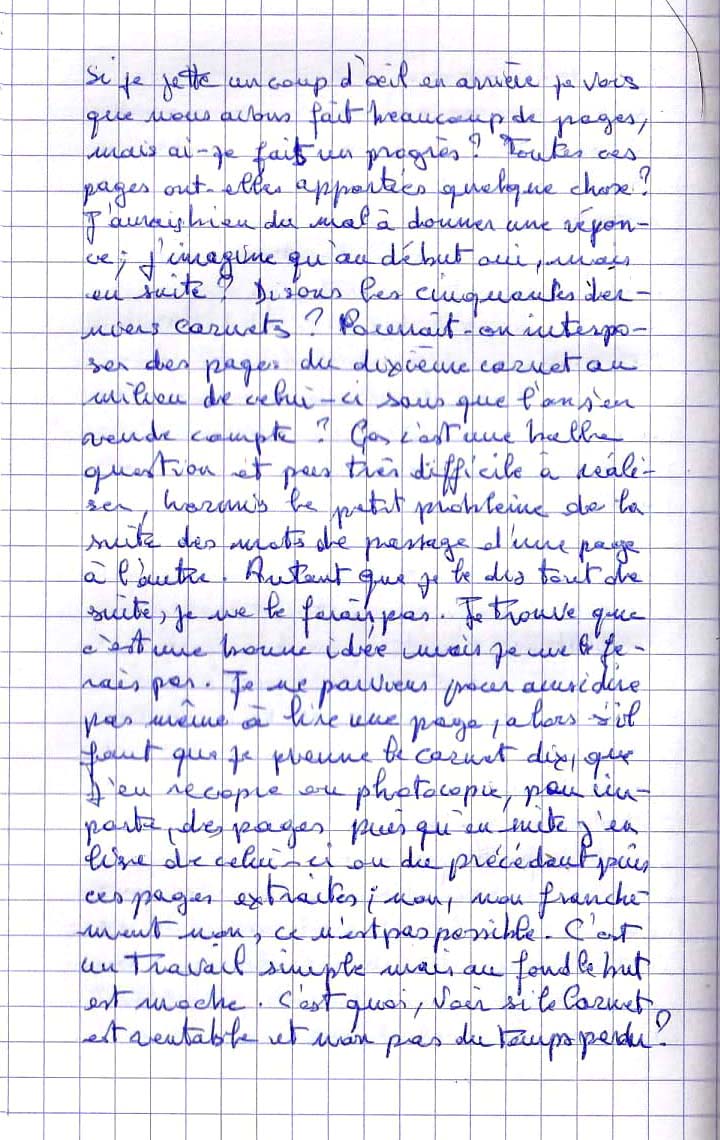 Si je jette un coup d'œil en arrière je vois
que nous avons fait beaucoup de pages,
mais ai-je fait un progrès? Toutes ces
pages ont-elles apportées quelque chose?
J'aurais bien du mal à donner une répon-
ce; j'imagine qu'au début oui, mais
en suite? Disons les cinquantes der-
niers carnets? Pourrait-on interpo-
ser des pages du dixième carnet au
milieu de celui-ci sans que l'on s'en
rende compte? Ça c'est une belle
question et pas très difficile à réali-
ser, hormis le petit problème de la
suite des mots de passage d'une page
à l'autre. Autant que je le dis tout de
suite, je ne le ferais pas. Je trouve que
c'est une bonne idée mais je ne le fe-
rais pas. Je ne parviens pour ainsi dire
pas même à lire une page, alors s'il
faut que je prenne le carnet dix, que
j'en recopie ou photocopie, peu im-
porte, des pages puis qu'en suite j'en
lise de celui-ci ou du précédent puis
ces pages extraites; non, non franche
ment non, ce n'est pas possible. C'est
un travail simple mais au fond le but
est moche. C'est quoi, voir si le Carnet
est rentable et non pas du temps perdu?